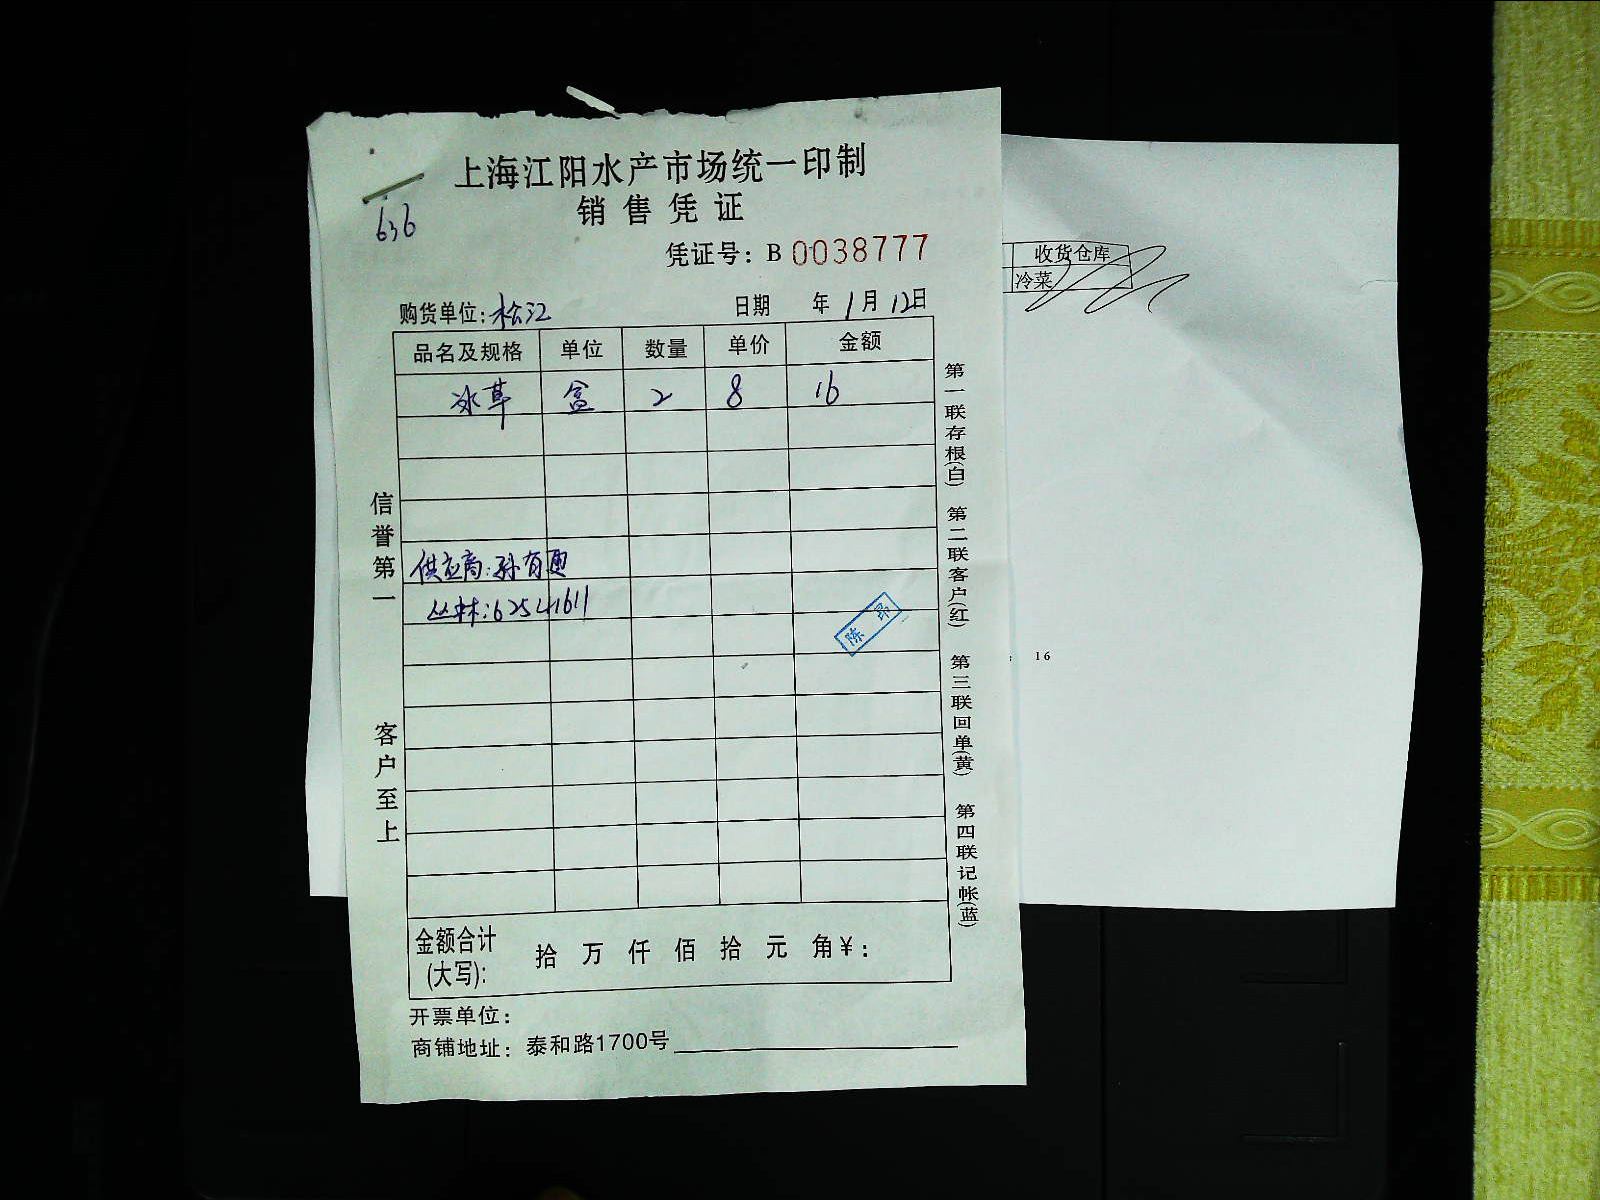 上海江阳水产市场统一印制
销售凭证
636
凭证号：B 0038777
购货单位：松江 日期 年 1 月 12 日
品名及规格 单位 数量 单价 金额
冰草 盒 2 8 16
供应商：孙有
丛林：62541611
陈昂
金额合计(大写)： 拾 万 仟 佰 拾 元 角 ¥：
开票单位：
商铺地址：泰和路1700号
信誉第一
客户至上
第一联存根(白) 第二联客户(红) 第三联回单(黄) 第四联记帐(蓝)
收货仓库
冷菜
16